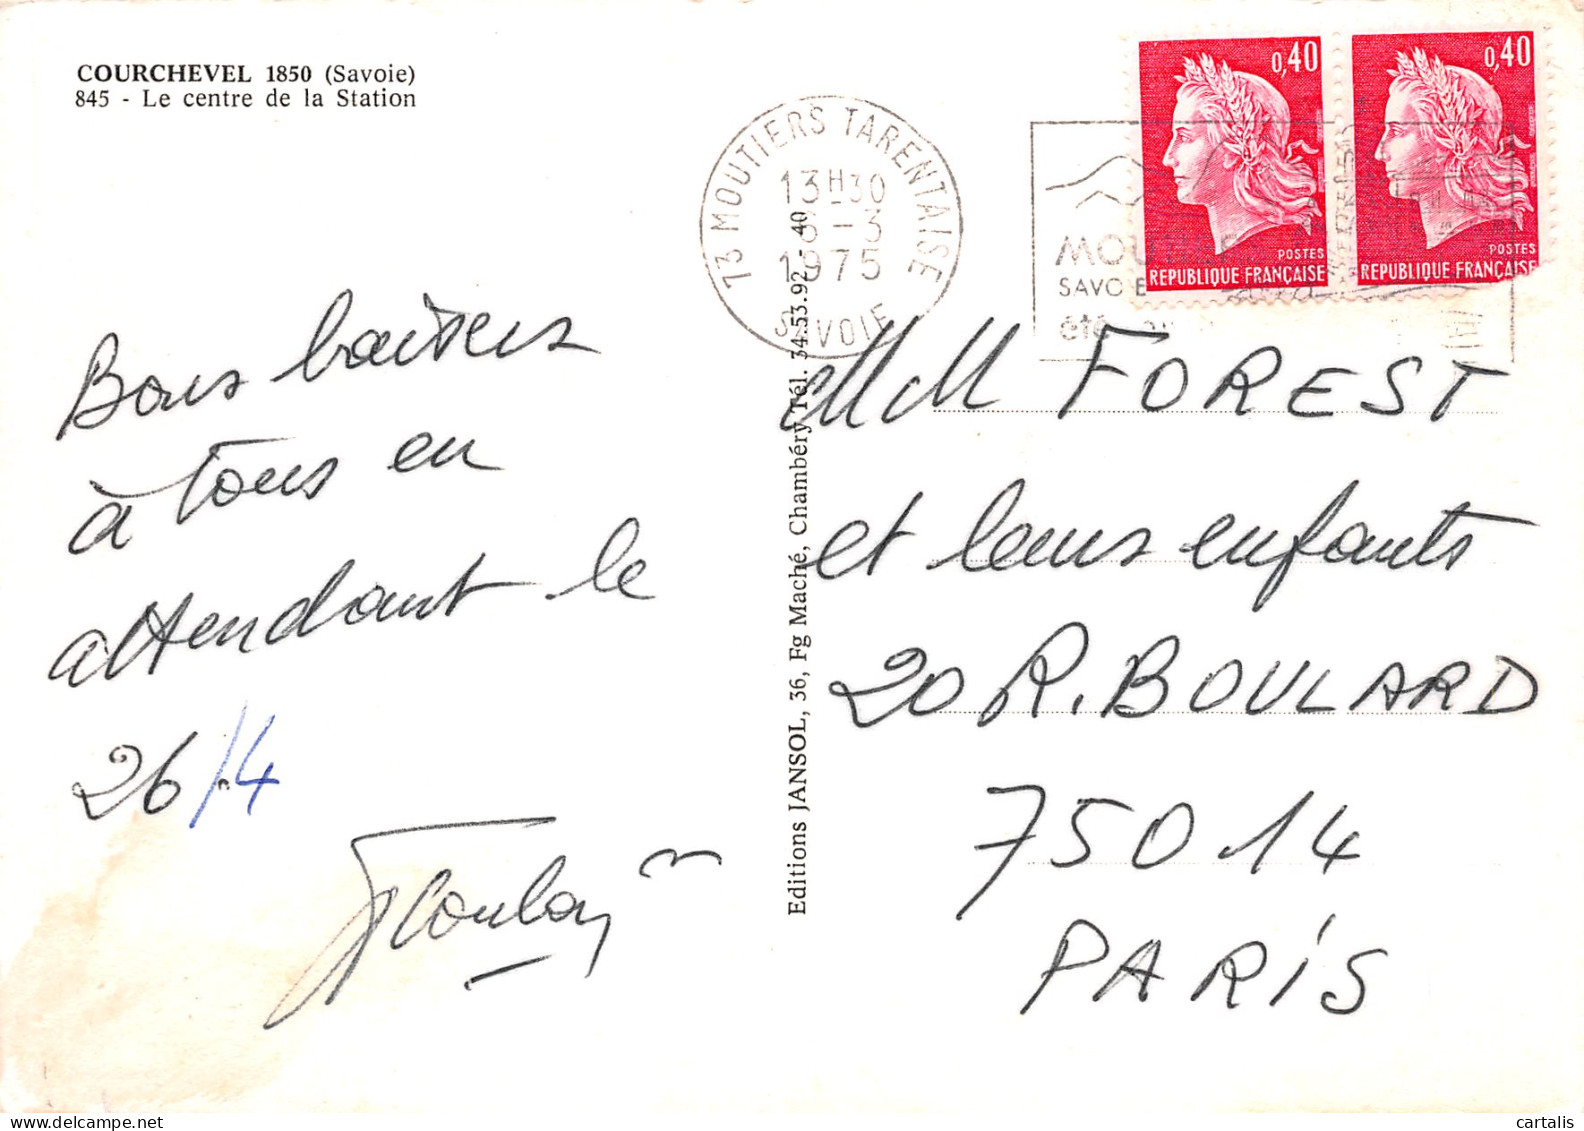 COURCHEVEL 1850 (Savoie)
845 - Le centre de la Station
Bons baisers
à tous en
attendant le
26/4
73 MOUTIERS TARENTAISE
13H30
3
1975
SAVOIE
MOUTIERS
SAVOIE
été
0,40
POSTES
REPUBLIQUE FRANÇAISE
0,40
POSTES
REPUBLIQUE FRANÇAISE
Editions JANSOL, 36, Fg Maché, Chambéry Tél. 34.53.92 - 40
MM FOREST
et leurs enfants
20 R. BOULARD
75014
PARIS
delcampe.net
cartalis